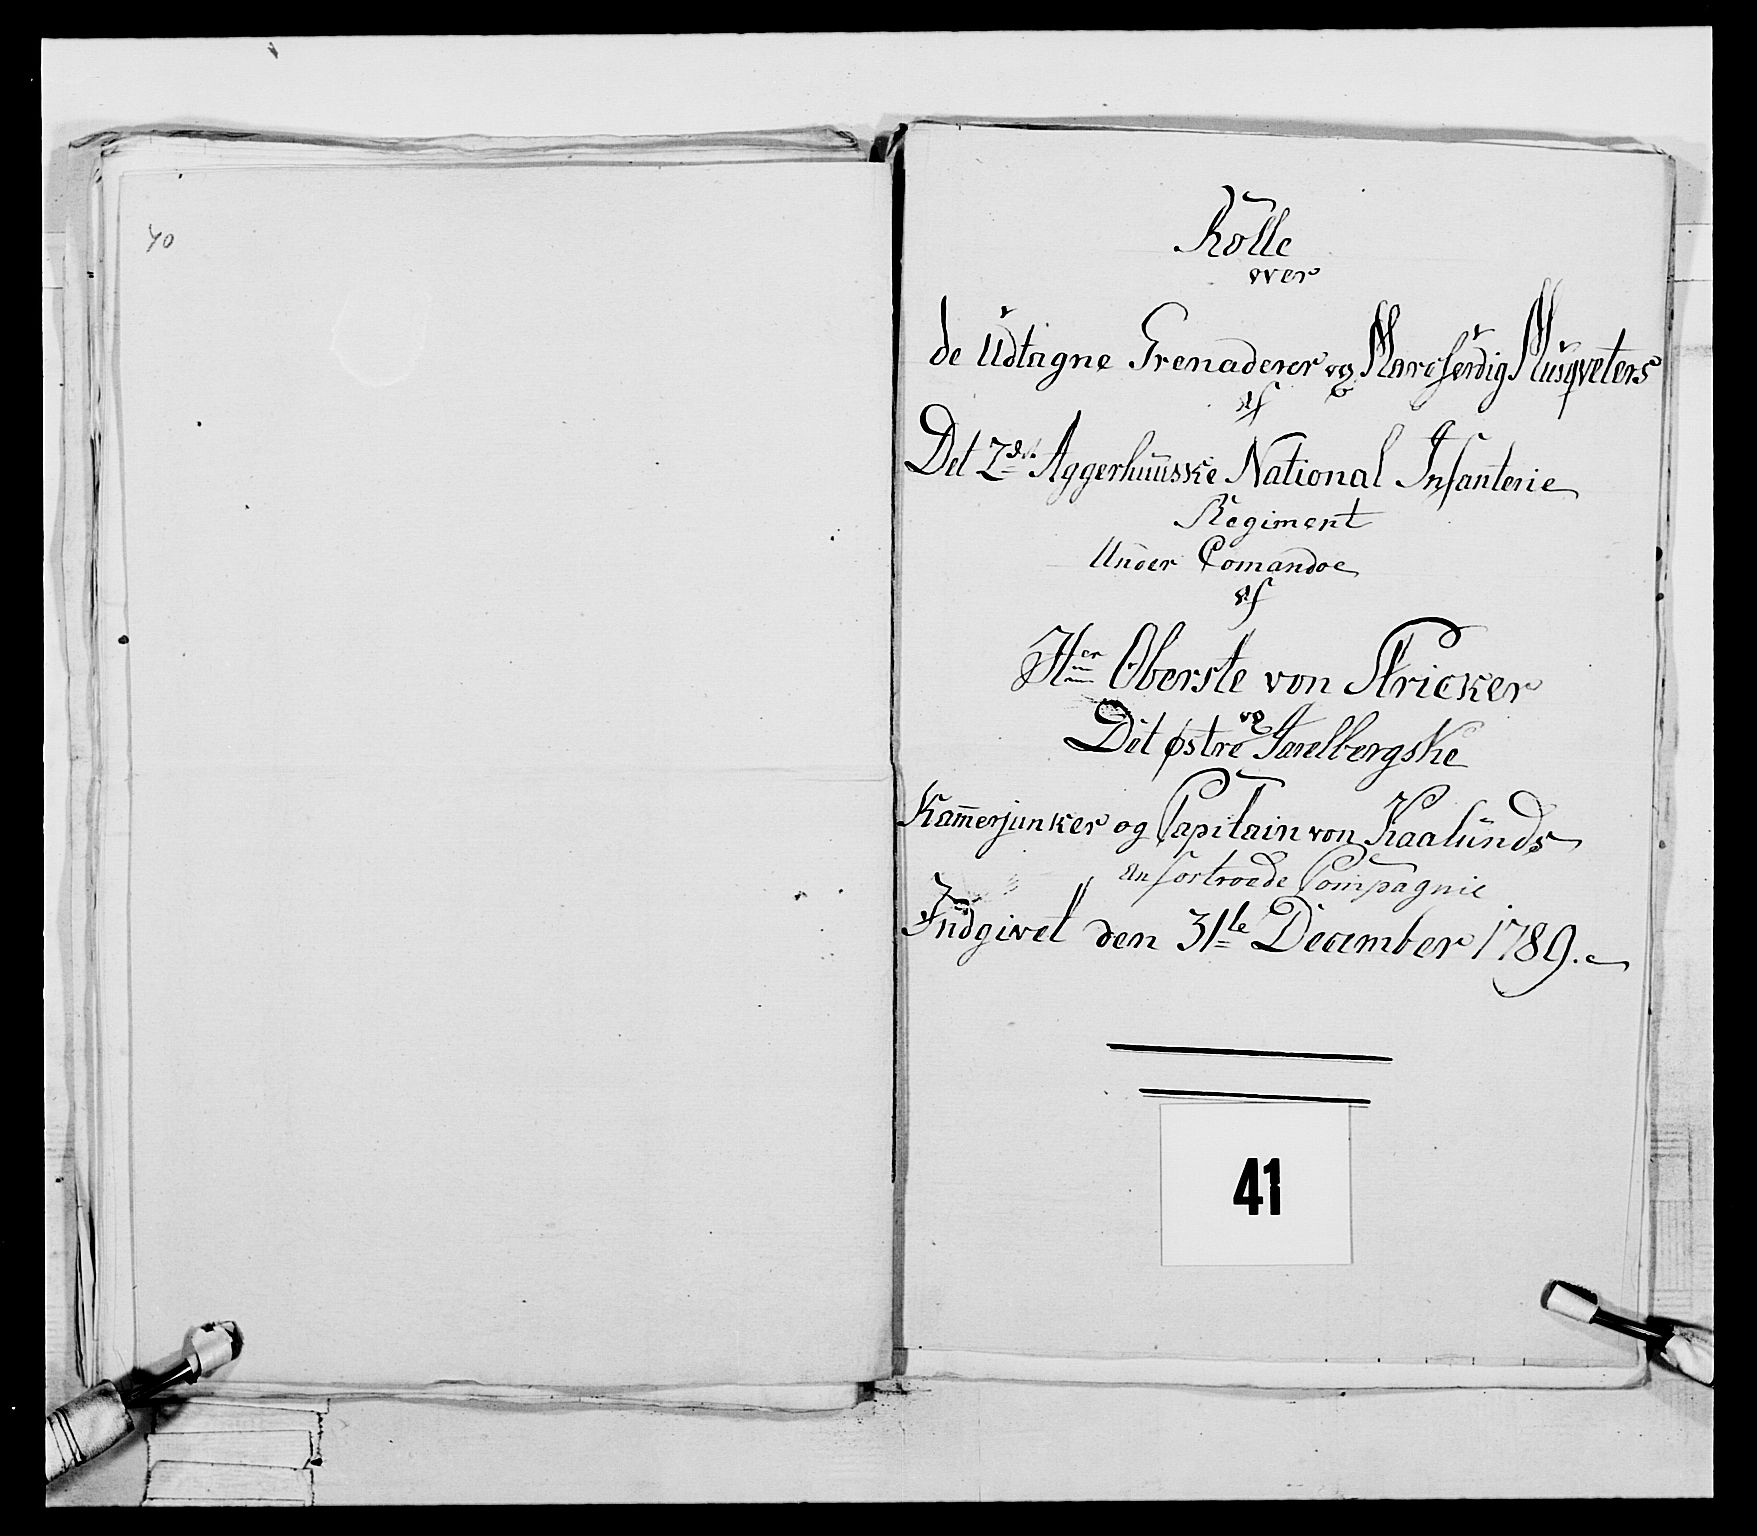 40
Rolle
over
de Udtagne Grenaderer og Marchferdig Musqveters
af
Det 2de Aggerhuuske National Infanterie
Regiment
Under Comandoe
af
Her Oberste von Stricker
Det østre og Jarelbergske
Kam̄erjunker og Capitain von Kaalunds
An fortroede Compagnie
Indgivet den 31te December 1789.
41